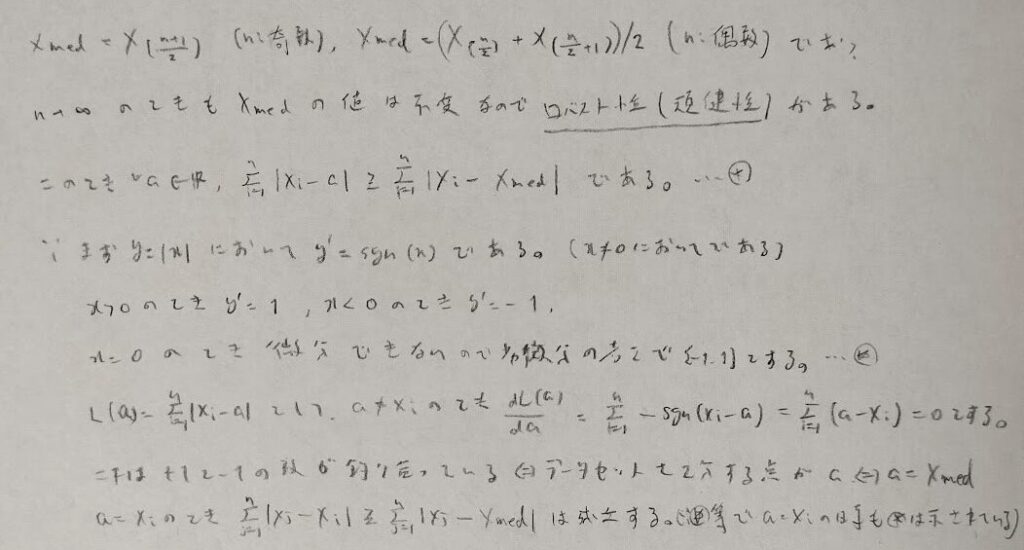 Xmed = X(n+1/2) (n:奇数), Xmed = (X(n/2) + X(n/2+1))/2 (n:偶数) であり
n→∞ のときも Xmed の値は不変なので ロバスト性(頑健性)がある。
このとき ∀a∈ℝ, Σ_{i=1}^{n} |Xi-a| ≥ Σ_{i=1}^{n} |Xi - Xmed| である。…(*)
∵ まず y=|x| において y'=sgn(x) である。(x≠0においてである)
x>0 のとき y'=1 , x<0 のとき y'=-1,
x=0 のとき 微分できないので 劣微分の考えで [-1,1] とする。…
L(a)= Σ_{i=1}^{n} |Xi-a| として、a≠Xi のとき dL(a)/da = Σ_{i=1}^{n} -sgn(Xi-a) = Σ_{i=1}^{n} (a-Xi) = 0 とする。
これは +1と-1の数が釣り合っている ⇔ データセットを2分する点が a ⇔ a = Xmed
a=Xi のとき Σ_{j=1}^{n} |Xj-Xi| ≥ Σ_{j=1}^{n} |Xj-Xmed| は成立する。( で a=Xiの時も は示されている)